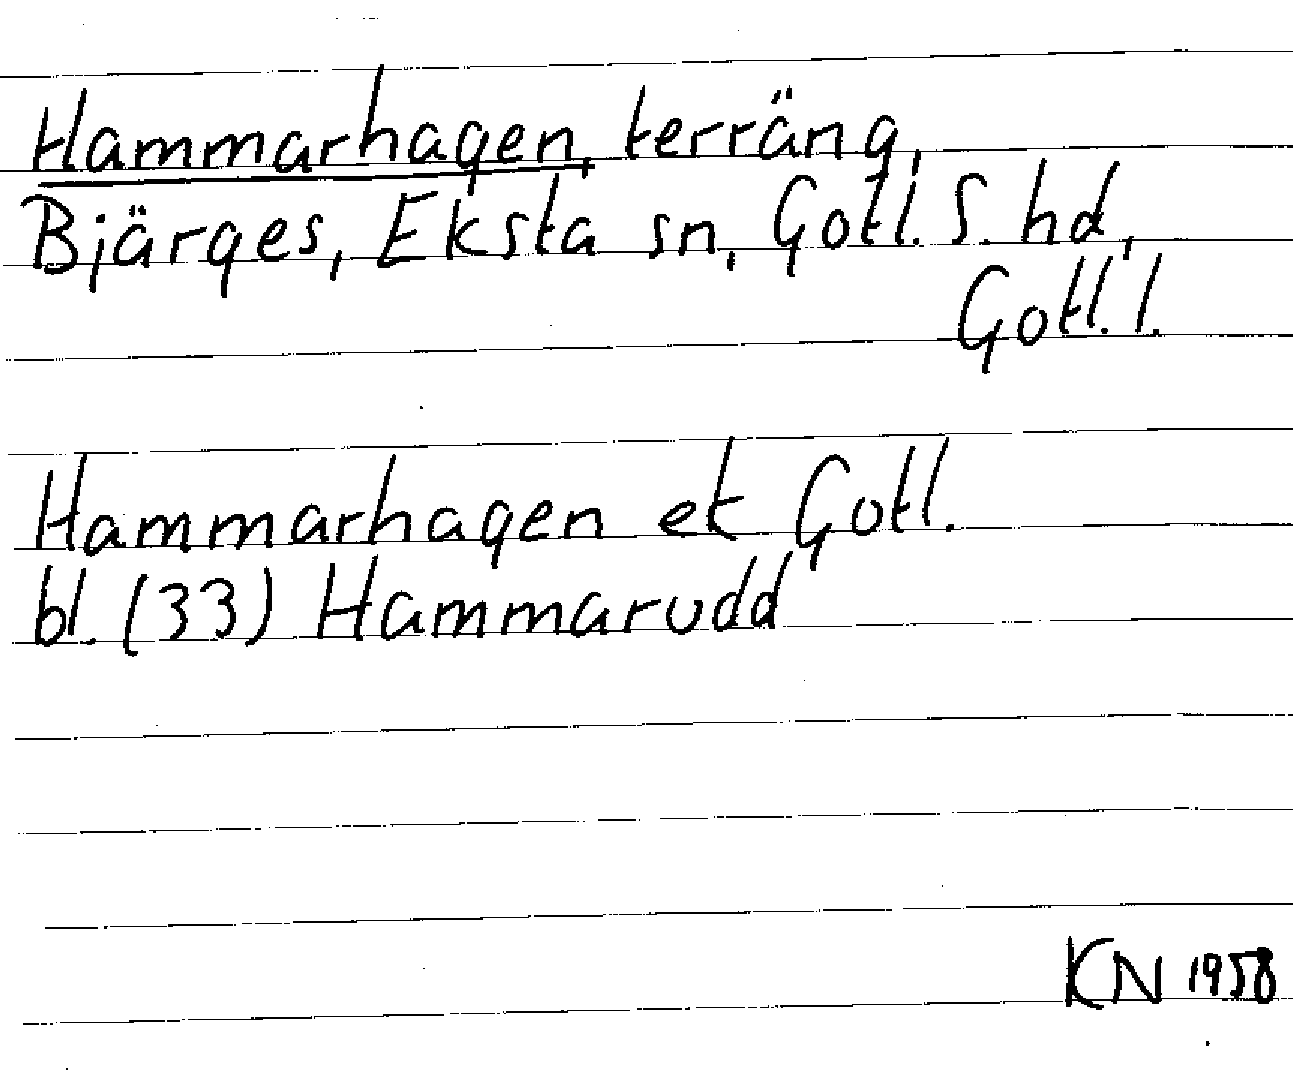 Hammarhagen, terräng,
Bjärges, Eksta sn, Gotl. S. hd,
Gotl. l.
Hammarhagen et Gotl.
bl. (33) Hammarudd
KN 1958